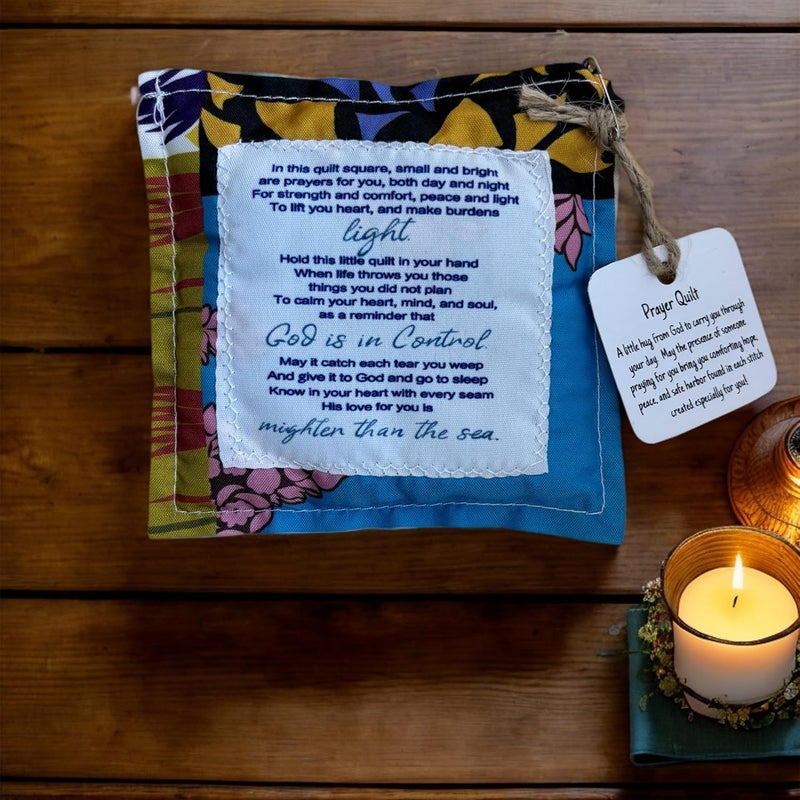 In this quilt square, small and bright
are prayers for you, both day and night
For strength and comfort, peace and light
To lift you heart, and make burdens
light.
Hold this little quilt in your hand
When life throws you those
things you did not plan
To calm your heart, mind, and soul,
as a reminder that
God is in Control.
May it catch each tear you weep
And give it to God and go to sleep
Know in your heart with every seam
His love for you is
mighten than the sea.
Prayer Quilt
A little hug from God to carry you through
your day. May the presence of someone
praying for you bring you comforting hope,
peace, and safe harbor found in each stitch
created especially for you!